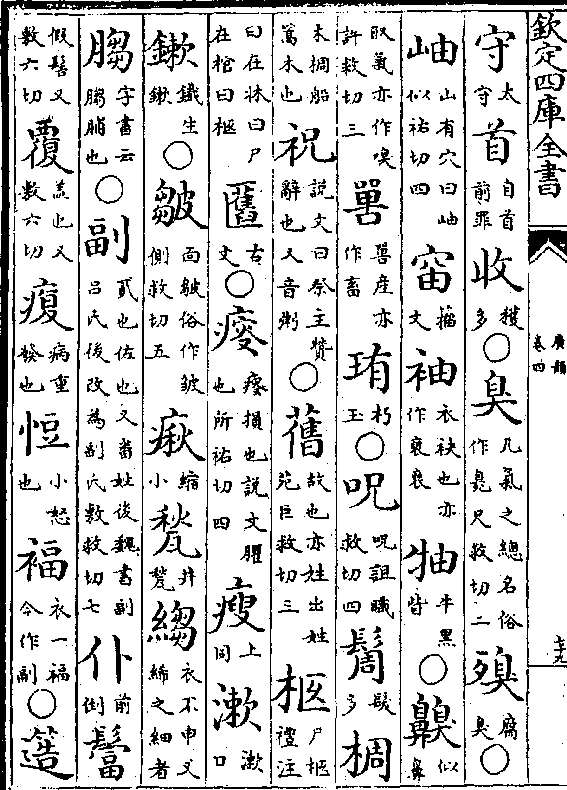 欽定四庫全書
廣韻
卷四
七十九
守太守首自首前罪收穫多○臭凡氣之總名俗作臰尺救切二殠腐臭○
岫山有穴曰岫似祐切四籀文袖衣袂也亦作褎褏牛黑眥○齅以鼻
取氣亦作嗅許救切三嘼嘼產亦作畜珛朽玉○呪呪詛職救切四䯾髮多椆
木椆船篙木也祝說文曰祭主贊辭也又音粥○舊故也亦姓出姓苑巨救切三柩尸柩禮注
曰在牀曰尸在棺曰柩匶古文○瘦損也說文臞也所祐切四瘦上同漱漱口
鏉鐵生鏉○皺面皺俗作皱側救切五瘷縮小甃井甃縐衣不申又絺之細者
䐢字書云䐢脯也○副貳也佐也又姓後魏書副吕氏後改為副氏敷救切七仆前倒
假髻又敷六切覆蓋也又敷六切癁病重發也小怒也褔衣一褔今作副○簉